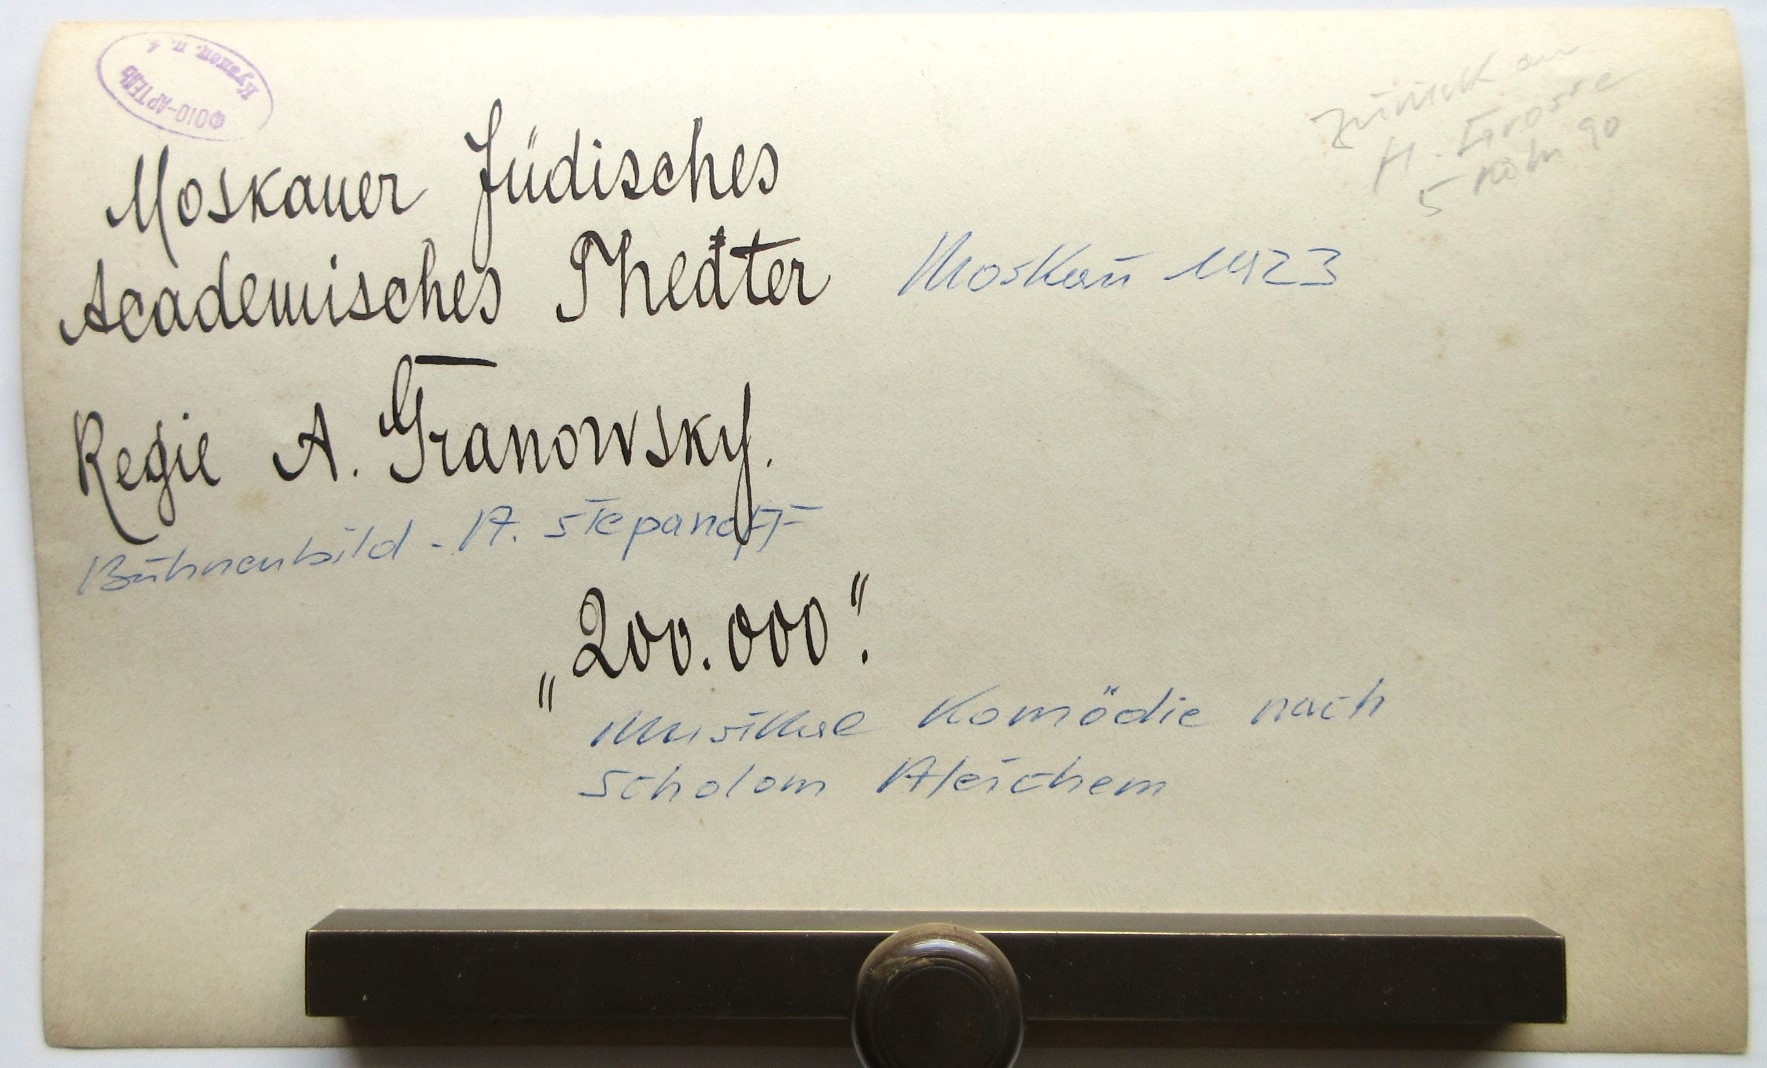 ФОТО-АРТЕЛЬ
Кузнец. п. 4.
Zurück an
H. Grosse
5 Köln 90
Moskauer Jüdisches
Academisches Theater
Moskau 1923
Regie A. Granowsky.
Bühnenbild - A. Stepanoff
„200.000“.
Musikal Komödie nach
Scholom Aleichem